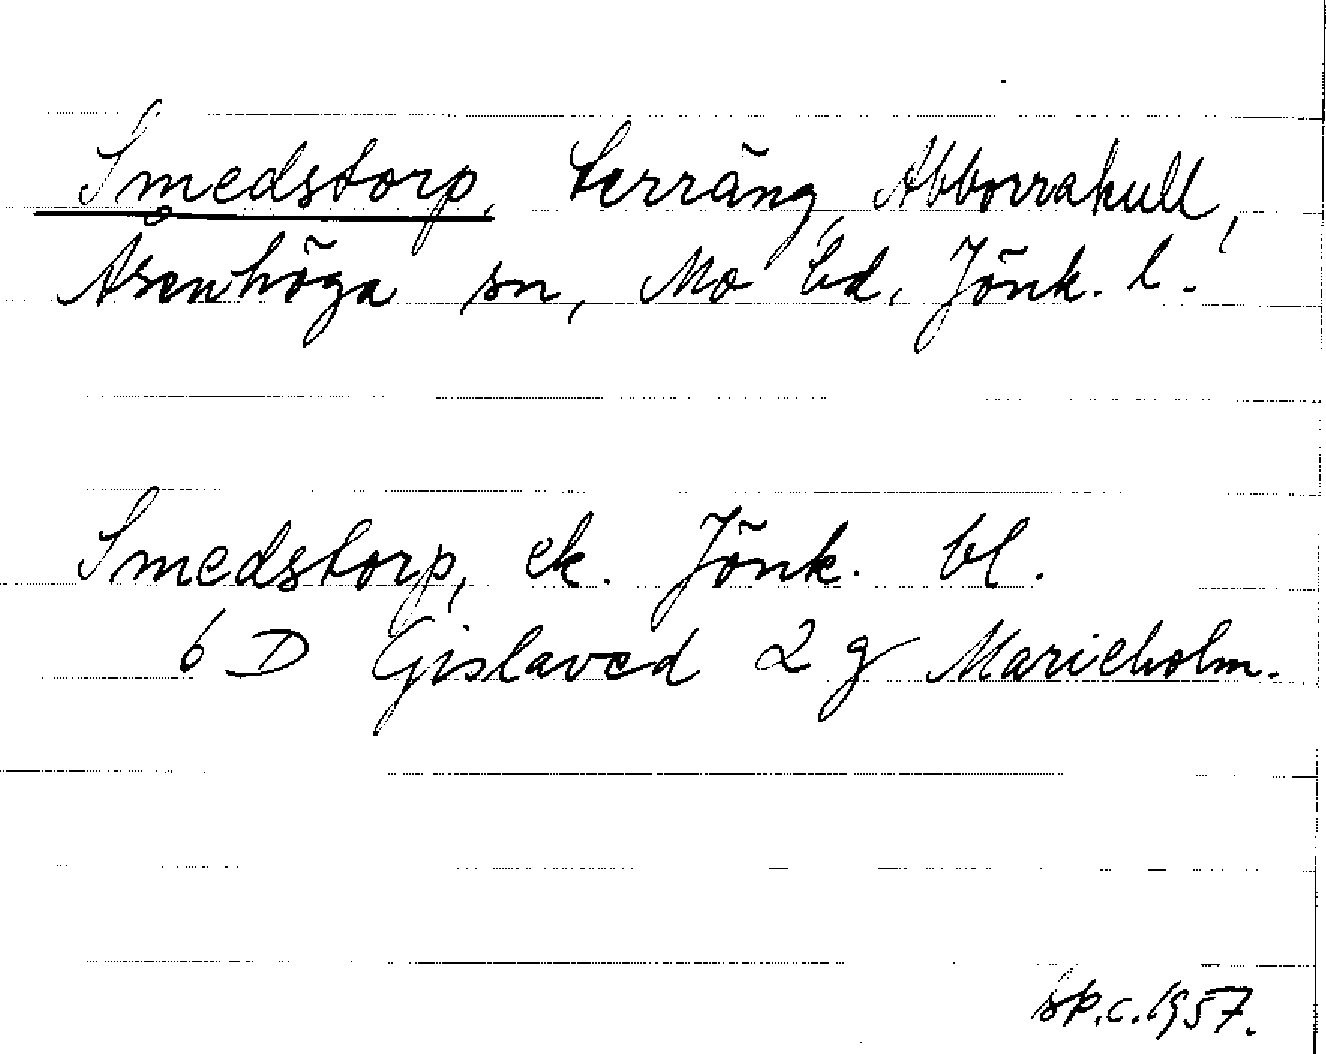 Smedstorp, terräng, Abborrakull,
Åsenhöga sn, Mo hd, Jönk. l.
Smedstorp, ek. Jönk. bl.
6 D Gislaved 2 g Marieholm.
sp.c. 1957.